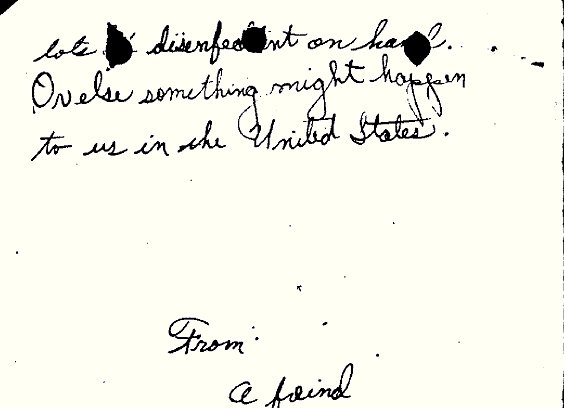 lots of disenfectent on hand.
Or else something might happen
to us in the United States.
From:
a freind